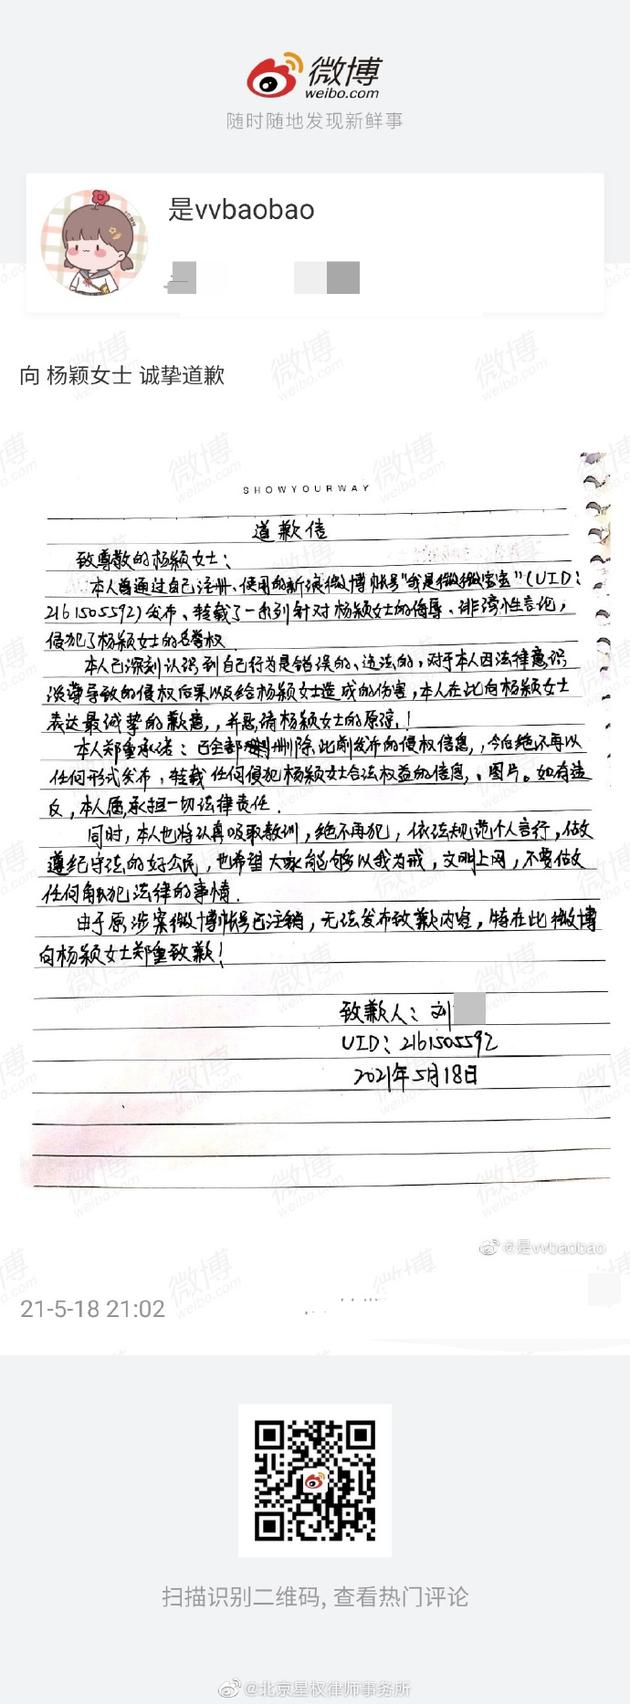 微博
weibo.com
随时随地发现新鲜事
是vvbaobao
向 杨颖女士 诚挚道歉
SHOWYOURWAY
道歉信
致尊敬的杨颖女士：
本人曾通过自己注册、使用的新浪微博账号“我是微微宝宝”（UID：
2161505592）发布、转载了一系列针对杨颖女士的侮辱、诽谤性言论，
侵犯了杨颖女士的名誉权.
本人已深刻认识到自己行为是错误的、违法的，对于本人因法律意识
淡薄导致的侵权后果以及给杨颖女士造成的伤害，本人在此向杨颖女士
表达最诚挚的歉意，，并恳请杨颖女士的原谅！
本人郑重承诺：已全部删除此前发布的侵权信息，，今后绝不再以
任何形式发布、转载任何侵犯杨颖女士合法权益的信息、图片。如有违
反，本人愿承担一切法律责任.
同时，本人也将认真吸取教训，绝不再犯，依法规范个人言行，做
遵纪守法的好公民，也希望大家能够以我为戒，文明上网，不要做
任何触犯法律的事情.
由于原涉案微博账号已注销，无法发布致歉内容，特在此微博
向杨颖女士郑重致歉！
致歉人：刘
UID：2161505592
2021年5月18日
@是vvbaobao
21-5-18 21:02
扫描识别二维码, 查看热门评论
@北京星权律师事务所